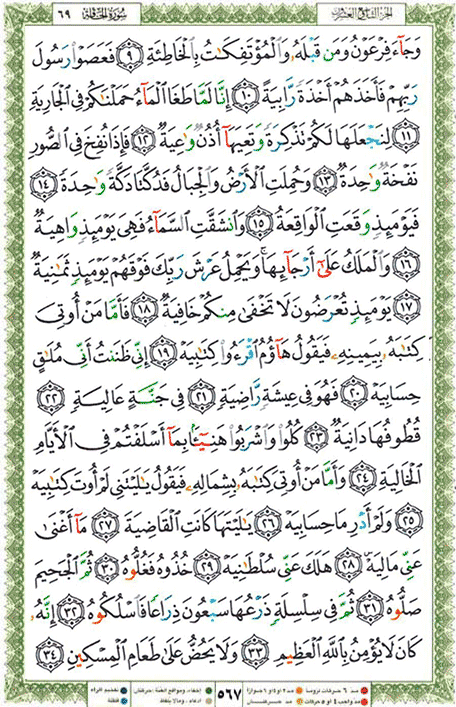 الجزء التاسع والعشرون سورة الحاقة ٦٩
وَجَآءَ فِرْعَوْنُ وَمَن قَبْلَهُۥ وَٱلْمُؤْتَفِكَٰتُ بِٱلْخَاطِئَةِ ٩ فَعَصَوْا۟ رَسُولَ
رَبِّهِمْ فَأَخَذَهُمْ أَخْذَةً رَّابِيَةً ١٠ إِنَّا لَمَّا طَغَا ٱلْمَآءُ حَمَلْنَٰكُمْ فِى ٱلْجَارِيَةِ
١١ لِنَجْعَلَهَا لَكُمْ تَذْكِرَةً وَتَعِيَهَآ أُذُنٌ وَٰعِيَةٌ ١٢ فَإِذَا نُفِخَ فِى ٱلصُّورِ
نَفْخَةٌ وَٰحِدَةٌ ١٣ وَحُمِلَتِ ٱلْأَرْضُ وَٱلْجِبَالُ فَدُكَّتَا دَكَّةً وَٰحِدَةً ١٤
فَيَوْمَئِذٍ وَقَعَتِ ٱلْوَاقِعَةُ ١٥ وَٱنشَقَّتِ ٱلسَّمَآءُ فَهِىَ يَوْمَئِذٍ وَاهِيَةٌ
١٦ وَٱلْمَلَكُ عَلَىٰٓ أَرْجَآئِهَا وَيَحْمِلُ عَرْشَ رَبِّكَ فَوْقَهُمْ يَوْمَئِذٍ ثَمَٰنِيَةٌ
١٧ يَوْمَئِذٍ تُعْرَضُونَ لَا تَخْفَىٰ مِنكُمْ خَافِيَةٌ ١٨ فَأَمَّا مَنْ أُوتِىَ
كِتَٰبَهُۥ بِيَمِينِهِۦ فَيَقُولُ هَآؤُمُ ٱقْرَءُوا۟ كِتَٰبِيَهْ ١٩ إِنِّى ظَنَنتُ أَنِّى مُلَٰقٍ
حِسَابِيَهْ ٢٠ فَهُوَ فِى عِيشَةٍ رَّاضِيَةٍ ٢١ فِى جَنَّةٍ عَالِيَةٍ ٢٢
قُطُوفُهَا دَانِيَةٌ ٢٣ كُلُوا۟ وَٱشْرَبُوا۟ هَنِيٓـًٔۢا بِمَآ أَسْلَفْتُمْ فِى ٱلْأَيَّامِ
ٱلْخَالِيَةِ ٢٤ وَأَمَّا مَنْ أُوتِىَ كِتَٰبَهُۥ بِشِمَالِهِۦ فَيَقُولُ يَٰلَيْتَنِى لَمْ أُوتَ كِتَٰبِيَهْ
٢٥ وَلَمْ أَدْرِ مَا حِسَابِيَهْ ٢٦ يَٰلَيْتَهَا كَانَتِ ٱلْقَاضِيَةَ ٢٧ مَآ أَغْنَىٰ
عَنِّى مَالِيَهْ ٢٨ هَلَكَ عَنِّى سُلْطَٰنِيَهْ ٢٩ خُذُوهُ فَغُلُّوهُ ٣٠ ثُمَّ ٱلْجَحِيمَ
صَلُّوهُ ٣١ ثُمَّ فِى سِلْسِلَةٍ ذَرْعُهَا سَبْعُونَ ذِرَاعًا فَٱسْلُكُوهُ ٣٢ إِنَّهُۥ
كَانَ لَا يُؤْمِنُ بِٱللَّهِ ٱلْعَظِيمِ ٣٣ وَلَا يَحُضُّ عَلَىٰ طَعَامِ ٱلْمِسْكِينِ ٣٤
مد ٦ حركات لزوماً مد ٢ او ٤ او ٦ جوازاً إخفاء، ومواقع الغنة (حركتان) تفخيم الراء
مد واجب ٤ او ٥ حركات مد حركتان ٥٦٧ ادغام، ومالا يلفظ قلقلة